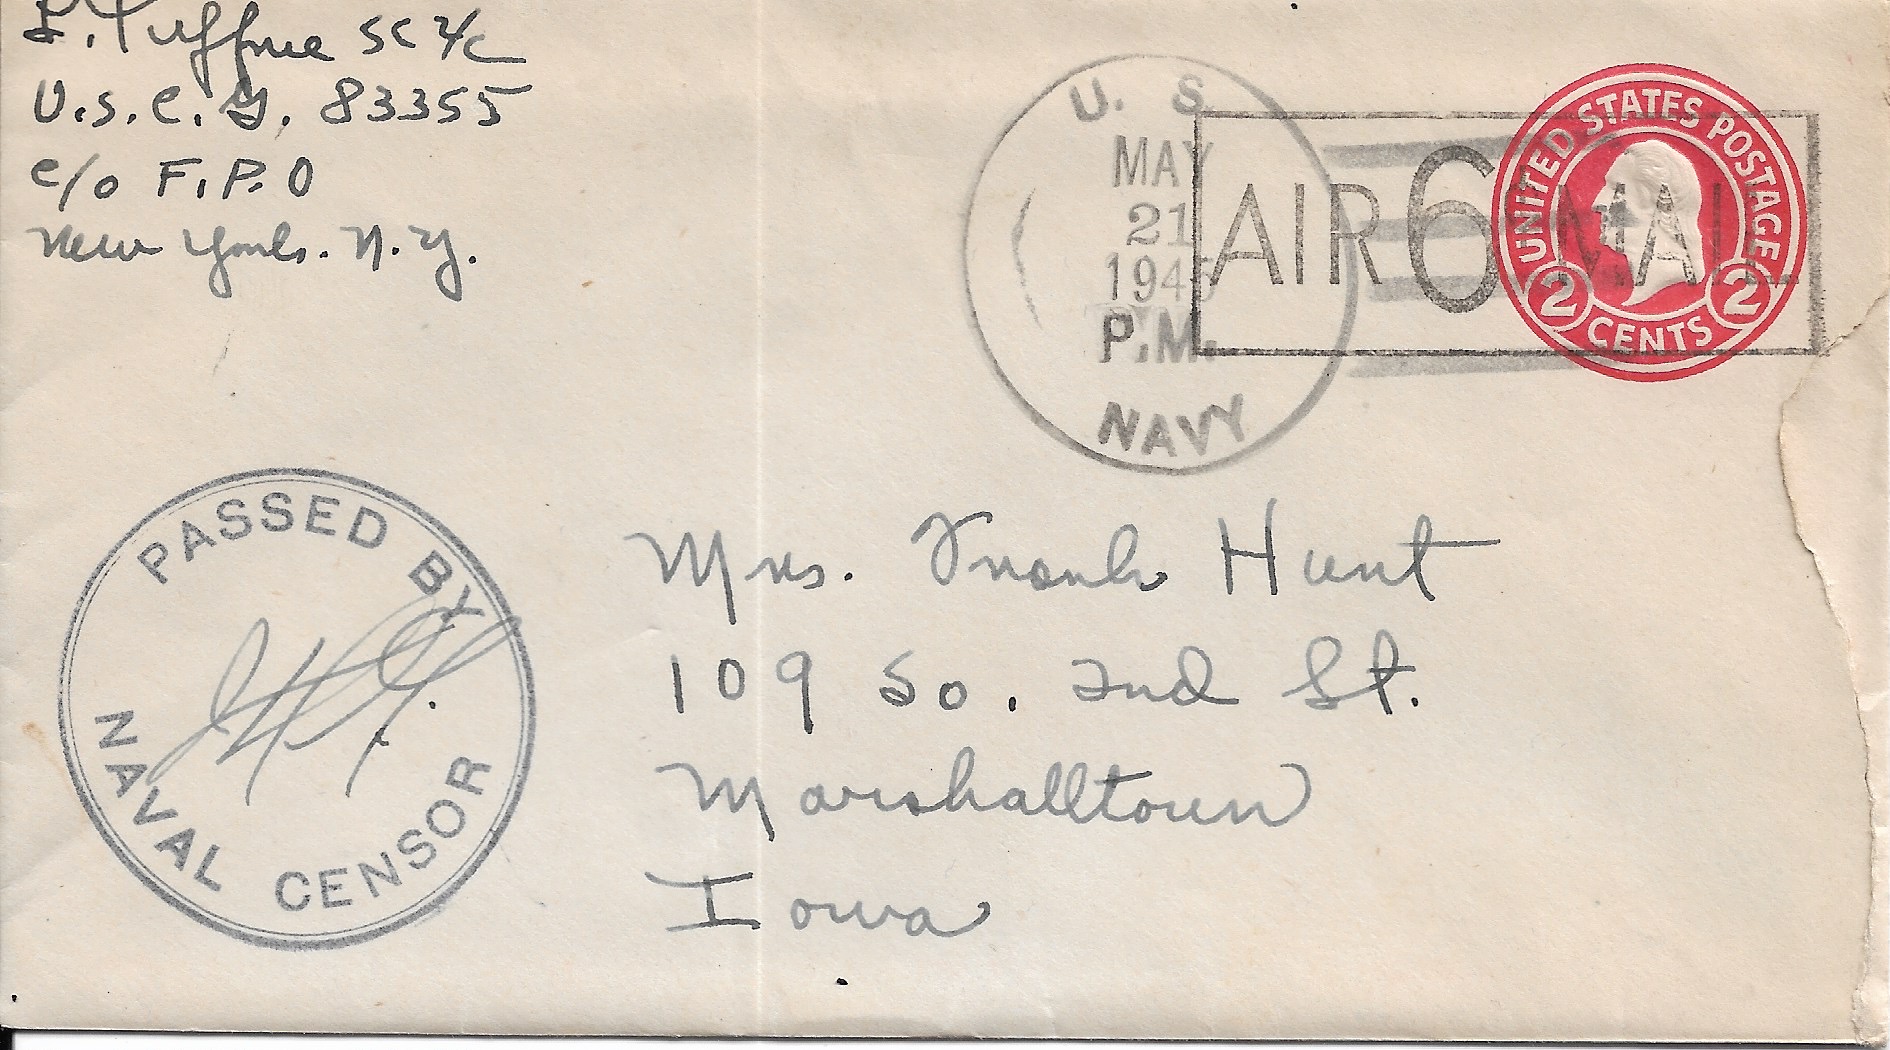 L. Tuffree SC 2/c
U.S.C.G. 83355
c/o F.P.O
New York. N.Y.
U. S.
MAY
21
1945
P.M.
NAVY
AIR 6 MAIL
UNITED STATES POSTAGE
2 CENTS 2
PASSED BY
NAVAL CENSOR
Mrs. Frank Hunt
109 So. 2nd St.
Marshalltown
Iowa